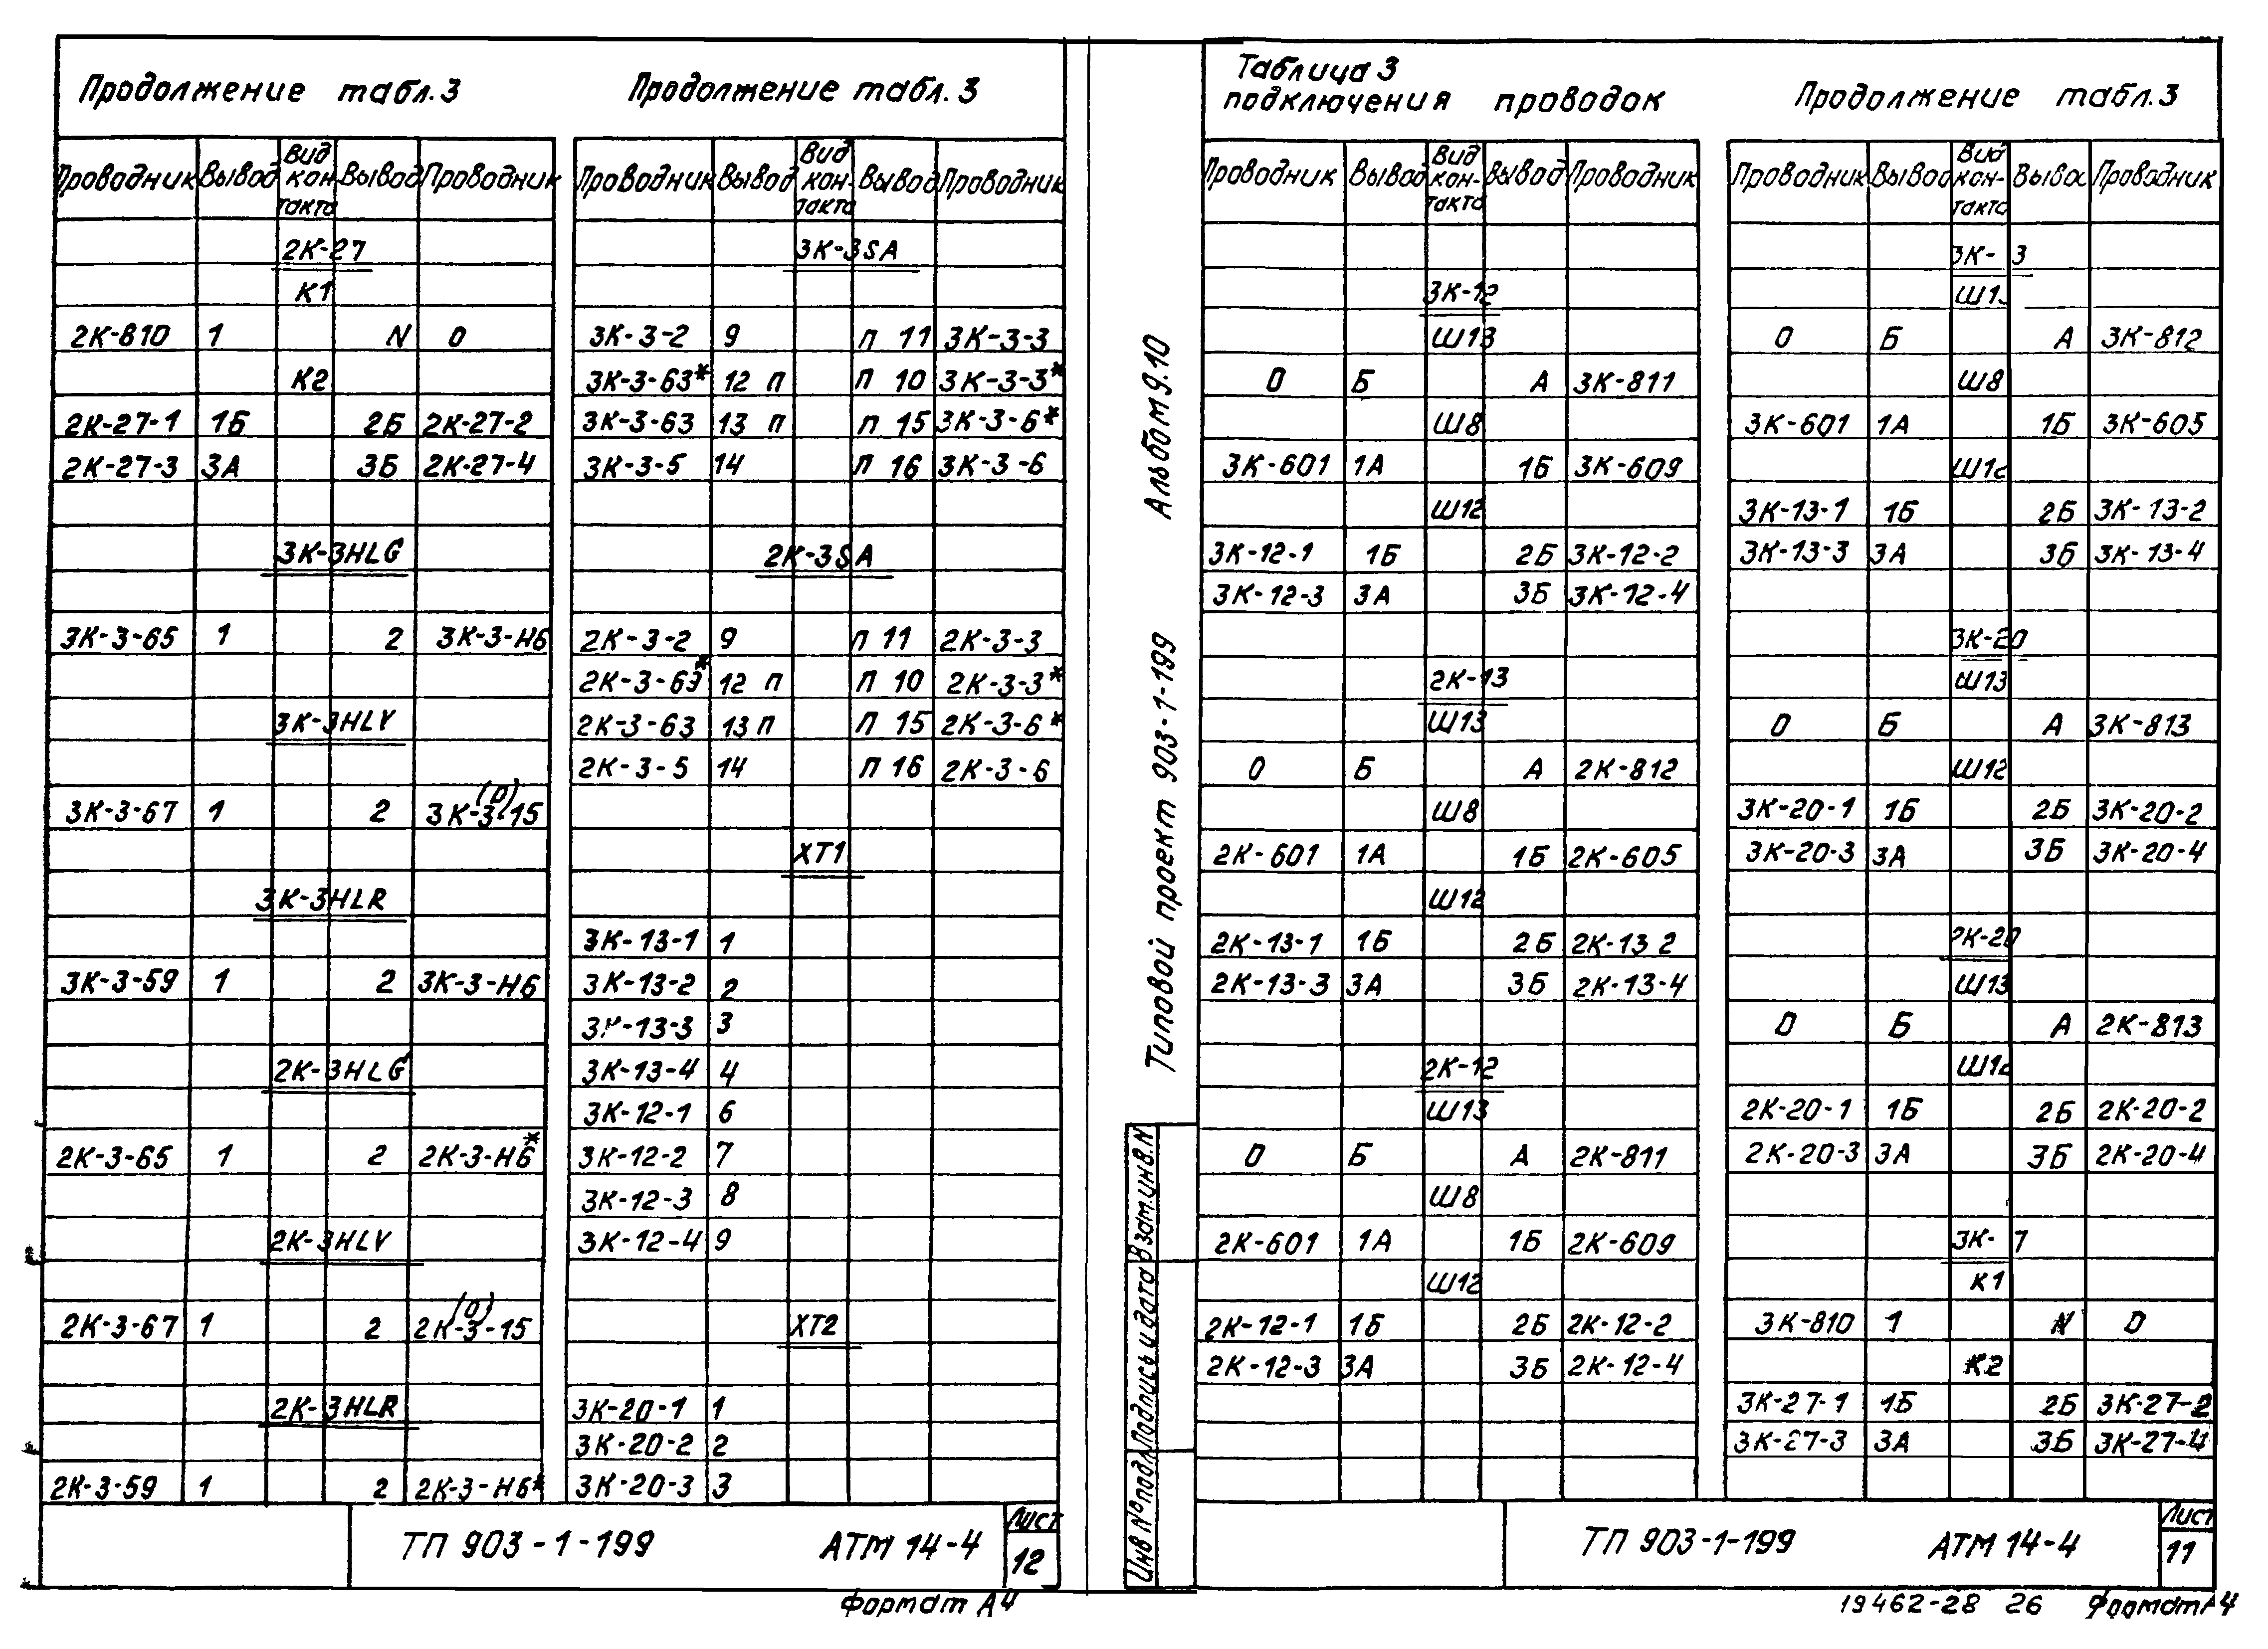 Продолжение табл.3
Проводник Вывод Вид контакта Вывод Проводник
2К-27
К1
2К-810 1 N 0
К2
2К-27-1 1Б 2Б 2К-27-2
2К-27-3 3А 3Б 2К-27-4
3К-3HLG
3К-3-65 1 2 3К-3-Н6
3К-3HLY
3К-3-67 1 2 3К-3(0)-15
3К-3HLR
3К-3-59 1 2 3К-3-Н6
2К-3HLG
2К-3-65 1 2 2К-3-Н6*
2К-3HLY
2К-3-67 1 2 2К-3(0)-15
2К-3HLR
2К-3-59 1 2 2К-3-Н6*
Продолжение табл.3
Проводник Вывод Вид контакта Вывод Проводник
3К-3SA
3К-3-2 9 П 11 3К-3-3
3К-3-63* 12 П П 10 3К-3-3*
3К-3-63 13 П П 15 3К-3-6*
3К-3-5 14 П 16 3К-3-6
2К-3SA
2К-3-2 9 П 11 2К-3-3
2К-3-63* 12 П П 10 2К-3-3*
2К-3-63 13 П П 15 2К-3-6*
2К-3-5 14 П 16 2К-3-6
ХТ1
3К-13-1 1
3К-13-2 2
3К-13-3 3
3К-13-4 4
3К-12-1 6
3К-12-2 7
3К-12-3 8
3К-12-4 9
ХТ2
3К-20-1 1
3К-20-2 2
3К-20-3 3
ТП 903-1-199 АТМ 14-4
Лист
12
Формат А4
Типовой проект 903-1-199 Альбом 9.10
Инв № подл. Подпись и дата Взам.инв.N
Таблица 3
подключения проводок
Проводник Вывод Вид контакта Вывод Проводник
3К-12
Ш13
0 Б А 3К-811
Ш8
3К-601 1А 1Б 3К-609
Ш12
3К-12-1 1Б 2Б 3К-12-2
3К-12-3 3А 3Б 3К-12-4
2К-13
Ш13
0 Б А 2К-812
Ш8
2К-601 1А 1Б 2К-605
Ш12
2К-13-1 1Б 2Б 2К-13 2
2К-13-3 3А 3Б 2К-13-4
2К-12
Ш13
0 Б А 2К-811
Ш8
2К-601 1А 1Б 2К-609
Ш12
2К-12-1 1Б 2Б 2К-12-2
2К-12-3 3А 3Б 2К-12-4
Продолжение табл.3
Проводник Вывод Вид контакта Выво Проводник
3К- 3
Ш13
0 Б А 3К-812
Ш8
3К-601 1А 1Б 3К-605
Ш12
3К-13-1 1Б 2Б 3К-13-2
3К-13-3 3А 3Б 3К-13-4
3К-20
Ш13
0 Б А 3К-813
Ш12
3К-20-1 1Б 2Б 3К-20-2
3К-20-3 3А 3Б 3К-20-4
2К-20
Ш13
0 Б А 2К-813
Ш12
2К-20-1 1Б 2Б 2К-20-2
2К-20-3 3А 3Б 2К-20-4
3К- 7
К1
3К-810 1 N 0
К2
3К-27-1 1Б 2Б 3К-27-2
3К-27-3 3А 3Б 3К-27-4
ТП 903-1-199 АТМ 14-4
Лист
11
19462-28 26 Формат А4